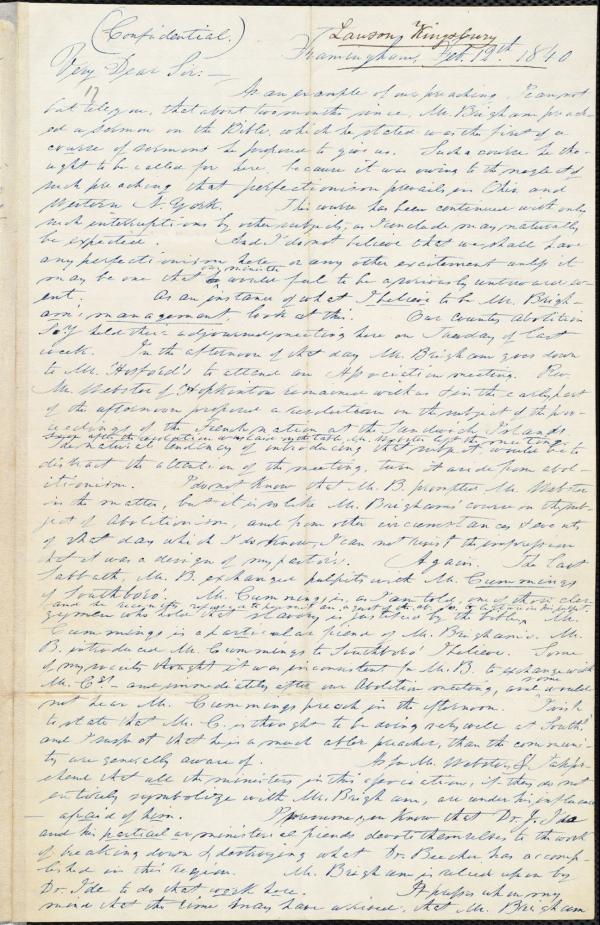 (Confidential.)
Lawson Kingsbury
Framingham, Feb. 12th. 1840
Very Dear Sir:—
As an example of our preaching, I can not
but tell you, that about two months since, Mr. Brigham preach-
ed a sermon on the Bible, which he stated was the first of a
course of sermons he proposed to give us. Such a course he tho-
ught to be called for here, because it was owing to the neglect of
such preaching that perfectionism prevails in Ohio and
Western N. York. This course has been continued with only
such interruptions by other subjects, as I conclude may naturally
be expected. And I do not believe that we shall have
any perfectionism here or any other excitement unless it
may be one that our minister would feel to be a
ent. As an instance of what I believe to be Mr. Brigh-
am's management look at this. Our county abolition
Soy held their adjourned meeting here on Tuesday of last
week. In the afternoon of that day Mr. Brigham goes down
to Mr. to attend an Association meeting. Rev.
Mr. Webster of Hopkinton remained with us & in the early part
of the afternoon proposed a resolution on the subject of the pro-
ceedings of the French nation at the Sandwich Islands
Soon after the resolution was laid on the table, Mr. Webster left the meeting.
The natural tendency of introducing that subject would be to
distract the attention of the meeting, turn it aside from abol-
itionism. I do not know that Mr. B. prompted Mr. Webster
in the matter, but it is so like Mr. Brigham's course on the sub-
ject of abolitionism, and from other circumstances & events
of that day which I do know, I can not resist the impression
that it was a design of my pastor's. Again. The last
Sabbath, Mr. B. exchanged pulpits with Mr. Cummings
of Southboro'. Mr. Cummings is, as I am told, one of those cler-
and he recently refused to permit an agent of the
gymen who hold that slavery is justified by the bible. Mr.
Cummings is a particular friend of Mr. Brigham's. Mr.
B. introduced Mr. Cummings to Southboro' I believe. Some
of my society thought it was inconsistent for Mr. B. to exchange with
Mr. C. and immediately after our Abolition meeting, and some would
not hear Mr. Cummings preach in the afternoon. I wish
to state that Mr. C. is thought to be doing very well at South'.
and I suspect that he is a much abler preacher, than the communi-
ty are generally aware of. As for Mr. Webster, I appre-
hend that all the ministers in this association, if they do not
entirely symbolize with Mr. Brigham, are under his influence
— afraid of him. I presume you know that Dr. J. Ide
and his partial or ministerial friends devote themselves to the work
of breaking down & destroying what Dr. Beecher has accomp-
lished in this region. Mr. Brigham is relied upon by
Dr. Ide to do that work here. It presses upon my
mind that the time may have arrived, that Mr. Brigham